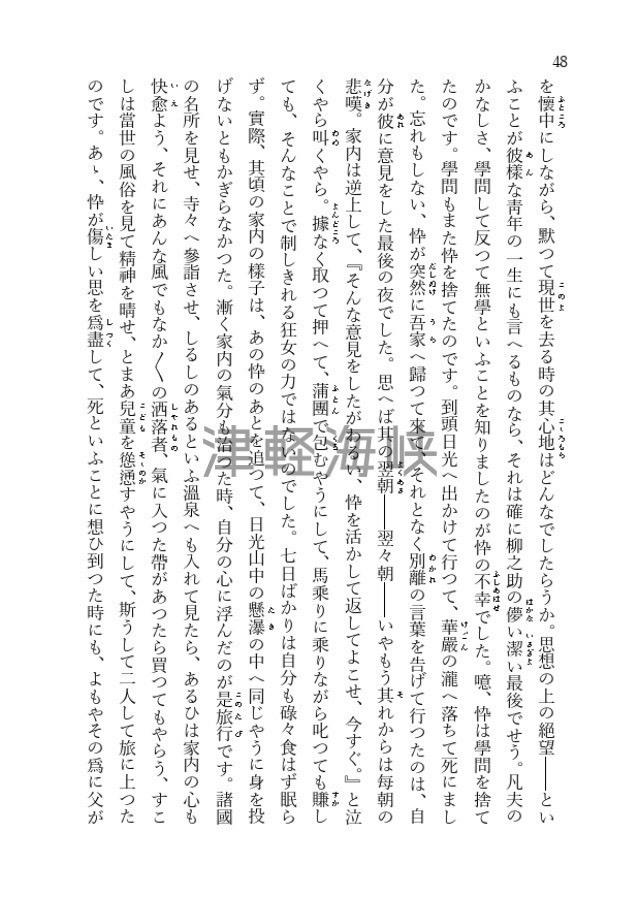 48
を懷中にしながら、默つて現世を去る時の其心地はどんなでしたらうか。思想の上の絕望――とい
ふことが彼樣な靑年の一生にも言へるものなら、それは確に柳之助の儚い潔い最後でせう。凡夫の
かなしさ、學問して反つて無學といふことを知りましたのが忰の不幸でした。噫、忰は學問を捨て
たのです。學問もまた忰を捨てたのです。到頭日光へ出かけて行つて、華嚴の瀧へ落ちて死にまし
た。忘れもしない、忰が突然に吾家へ歸つて來て、それとなく別離の言葉を告げて行つたのは、自
分が彼に意見をした最後の夜でした。思へば其の翌朝――翌々朝――いやもう其れからは每朝の
悲嘆。家內は逆上して、『そんな意見をしたがわるい、忰を活かして返してよこせ、今すぐ。』と泣
くやら叫くやら。據なく取つて押へて、蒲團で包むやうにして、馬乘りに乘りながら叱つても賺し
ても、そんなことで制しきれる狂女の力ではないのでした。七日ばかりは自分も碌々食はず眠ら
ず。實際、其頃の家內の樣子は、あの忰のあとを追つて、日光山中の懸瀑の中へ同じやうに身を投
げないともかぎらなかつた。漸く家內の氣分も治つた時、自分の心に浮んだのが是旅行です。諸國
の名所を見せ、寺々へ參詣させ、しるしのあるといふ溫泉へも入れて見たら、あるひは家內の心も
快愈よう、それにあんな風でもなか〱の洒落者、氣に入つた帶があつたら買つてもやらう、すこ
しは當世の風俗を見て精神を晴せ、とまあ兒童を慫慂すやうにして、斯うして二人して旅に上つた
のです。あゝ、忰が傷しい思を爲盡して、死といふことに想ひ到つた時にも、よもやその爲に父が
津軽海峡